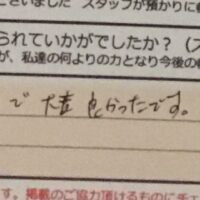 ございました スタッフが預かりに
られていかがでしたか？（ス
が、私達の何よりの力となり今後の
で 大変 良かったです。
す。掲載のご協力頂けるものにチェ